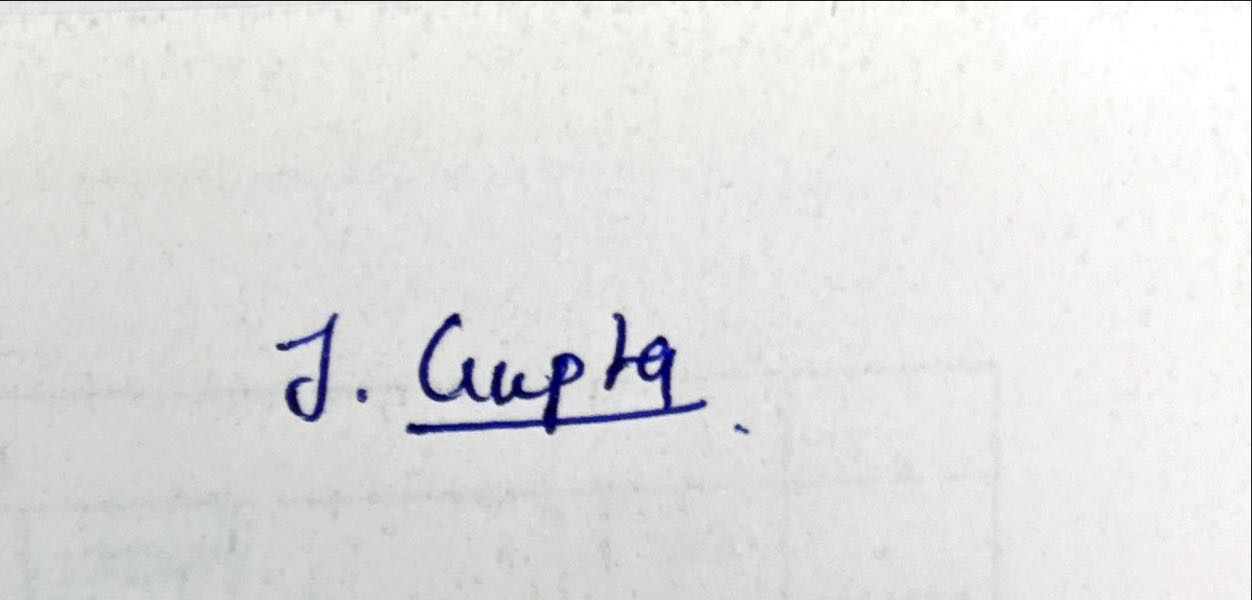 J. Gupta.